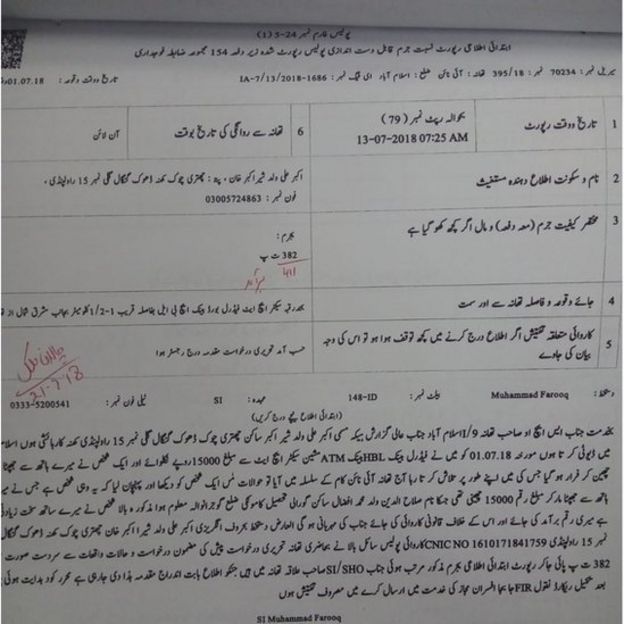 پولیس فارم نمبر 24-5(1)
ابتدائی اطلاعی رپورٹ نسبت جرم قابل دست اندازی پولیس رپورٹ شدہ زیر دفعہ 154 مجموعہ ضابطہ فوجداری
سیریل نمبر: 70234 نمبر: 395/18 تھانہ: آئی نائن ضلع: اسلام آباد ای ٹیگ نمبر: IA-7/13/2018-1686 تاریخ ووقت وقوعہ: 01.07.18
1 تاریخ ووقت رپورٹ بحوالہ رپٹ نمبر (79) 13-07-2018 07:25 AM 6 تھانہ سے روانگی کی تاریخ بوقت آن لائن
2 نام و سکونت اطلاع دہندہ مستغیث اکبر علی ولد شیر اکبر خان، پتہ: چھتری چوک کھنہ ڈھوک کنگال گلی نمبر 15 راولپنڈی،
فون نمبر: 03005724863
3 مختصر کیفیت جرم (معہ دفعہ) و مال اگر کچھ کھو گیا ہے
بجرم:
382 ت پ
411
4 جائے وقوعہ و فاصلہ تھانہ سے اور سمت بحدرقبہ سیکٹر ایچ ایٹ فیڈرل بورڈ بینک ایچ بی ایل بفاصلہ قریب 2-1/2 کلومیٹر بجانب مشرق شمال از
5 کاروائی متعلقہ تفتیش اگر اطلاع درج کرنے میں کچھ توقف ہوا ہو تو اس کی وجہ بیان کی جاوے حسب آمد تحریری درخواست مقدمہ درج رجسٹر ہوا
21-7-18
دستخط: Muhammad Farooq بیلٹ نمبر: 148-ID عہدہ: SI ٹیلی فون نمبر: 0333-5200541
(ابتدائی اطلاع نیچے درج کریں)
بخدمت جناب ایس ایچ او صاحب تھانہ I/9 اسلام آباد جناب عالی گزارش ہیکہ مسمی اکبر علی ولد شیر اکبر ساکن چھتری چوک ڈھوک کنگال گلی نمبر 15 راولپنڈی کھنہ کا رہائشی ہوں اسلام
میں ڈیوٹی کرتا ہوں مورخہ 01.07.18 کو میں نے فیڈرل بینک HBL بینک ATM مشین سیکٹر ایچ ایٹ سے مبلغ 15000 روپے نکلوائے اور ایک شخص نے میرے ہاتھ سے
چھین کر فرار ہو گیا جس کی میں اپنے طور پر تلاش کرتا رہا آج تھانہ آئی نائن کام کے سلسلہ میں آیا تو حوالات میں اس شخص کو دیکھا اور پہچان لیا کہ یہ وہی شخص ہے جس نے
ہاتھ سے رقم مبلغ 15000 چھینی تھی جسکا نام صلاح الدین ولد محمد افضال ساکن گورالی تحصیل کامونکی ضلع گوجرانوالہ معلوم ہوا مذکورہ بالا شخص نے میرے ساتھ سخت زیادتی
ہے میری رقم برآمد کی جائے اور اس کے خلاف قانونی کاروائی کی جائے جناب کی مہربانی ہو گی العارض دستخط بحروف انگریزی اکبر علی ولد شیر اکبر خان چھتری چوک کھنہ ڈھوک
نمبر 15 راولپنڈی CNIC NO 1610171841759 کاروائی پولیس سائل بالا نے بحاضری تھانہ تحریری درخواست پیش کی مضمون درخواست و حالات واقعات سے سردست صورت
382 ت پ پائی جا کر رپورٹ ابتدائی اطلاعی بجرم مذکور مرتب ہوئی جناب SI/SHO صاحب علاقہ تھانہ میں ہیں جنکو اطلاع بابت اندراج مقدمہ ہذا دی جارہی ہے محرر کو ہدایت ہوئی
بعد تکمیل ریکارڈ نقول FIR جابجا افسران مجاز کی خدمت میں ارسال کرے میں مصروف تفتیش ہوں
SI Muhammad Farooq